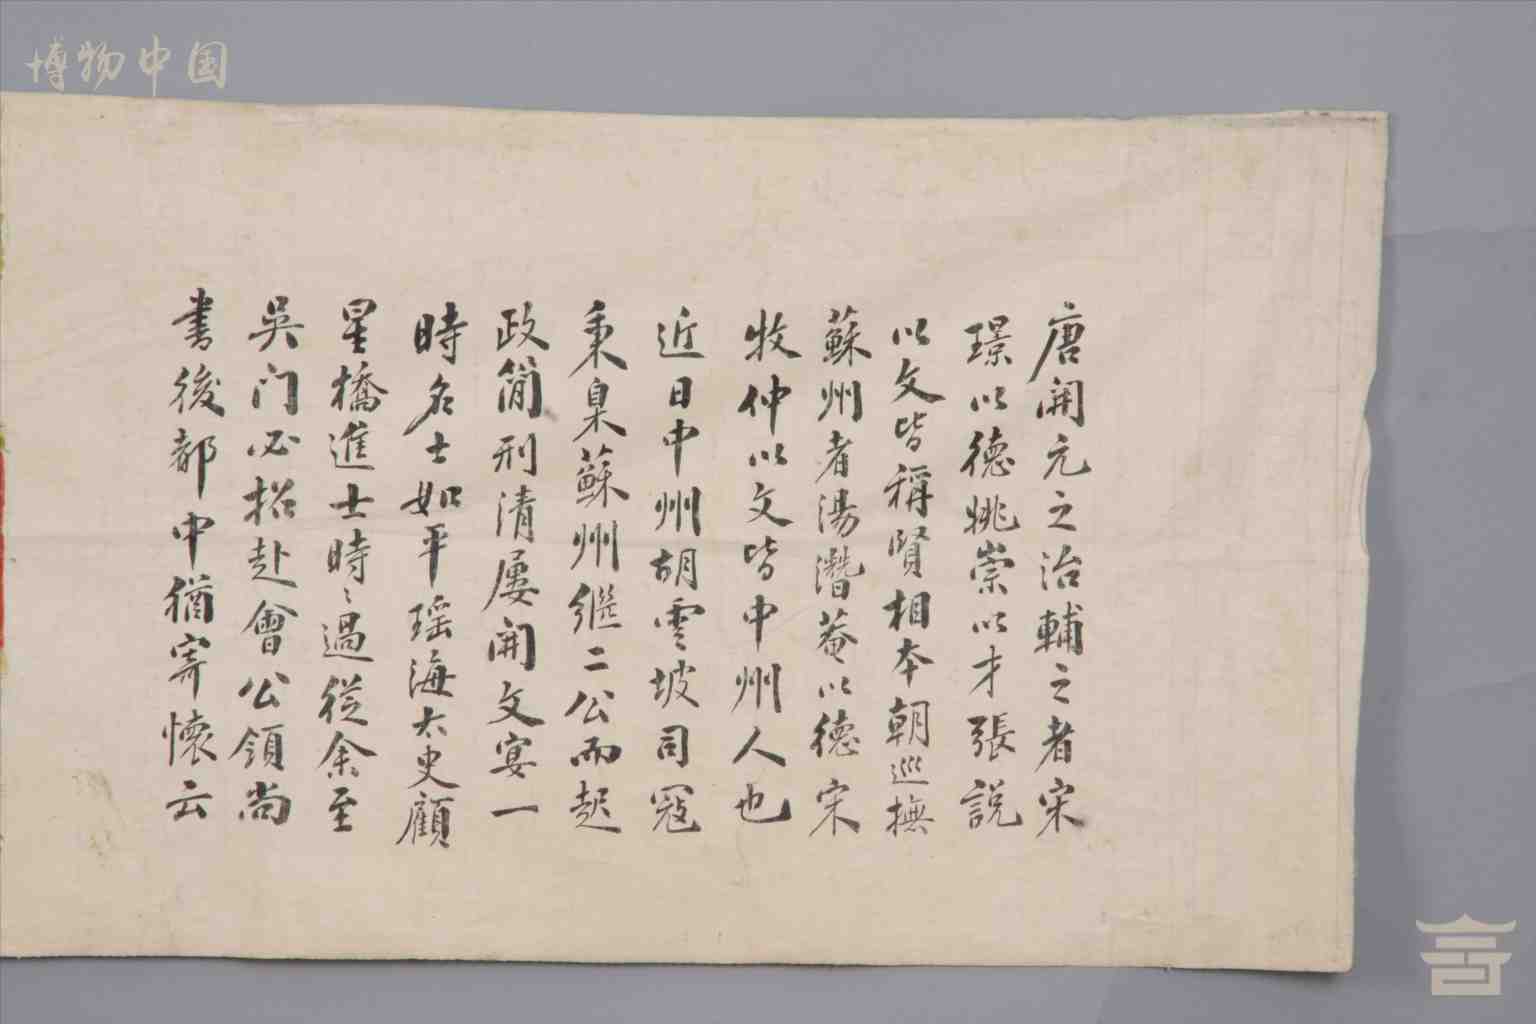 博物中国
唐開元之治輔之者宋
璟以德姚崇以才張説
以文皆稱賢相本朝巡撫
蘇州者湯潛菴以德宋
牧仲以文皆中州人也
近日中州胡雲坡司寇
秉臬蘇州繼二公而起
政簡刑清屢開文宴一
時名士如平瑶海太史顧
星橋進士時〻過從余至
吳门必招赴會公領尚
書後都中猶寄懷云